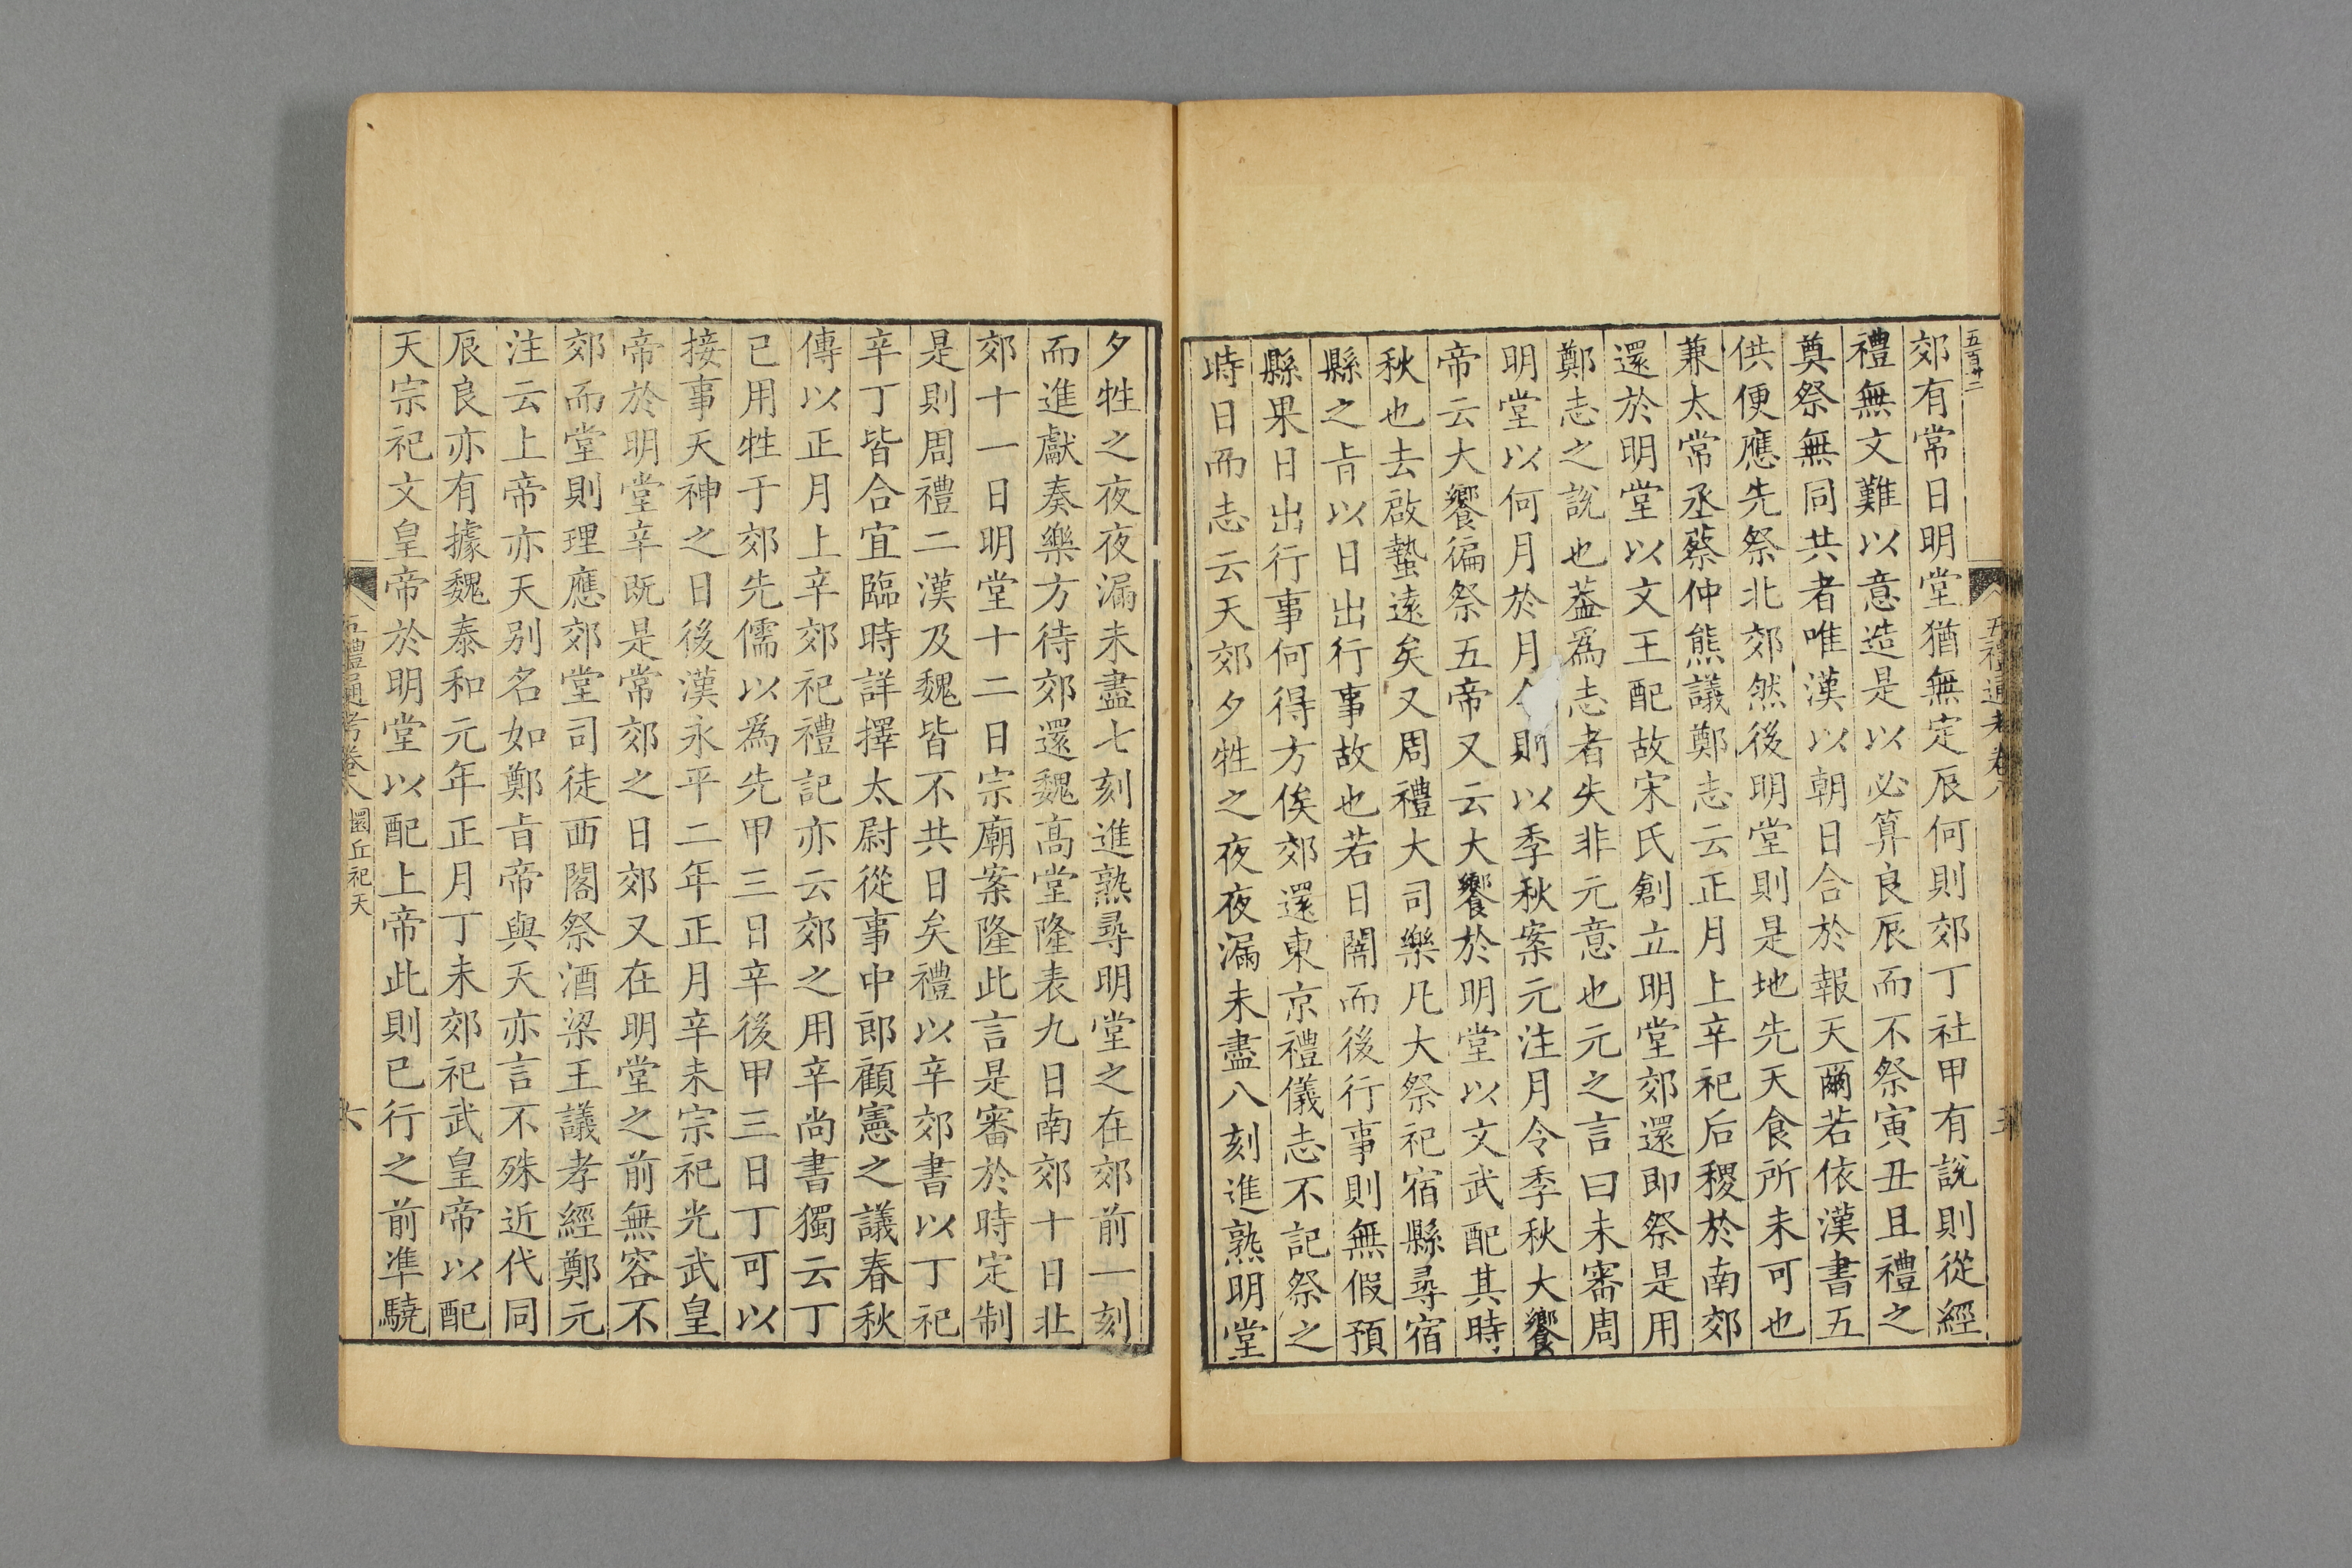 五百廿二
郊有常日明堂猶無定辰何則郊丁社甲有說則從經
禮無文難以意造是以必算良辰而不祭寅丑且禮之
奠祭無同共者唯漢以朝日合於報天爾若依漢書五
供便應先祭北郊然後明堂則是地先天食所未可也
兼太常丞蔡仲熊議鄭志云正月上辛祀后稷於南郊
還於明堂以文王配故宋氏創立明堂郊還即祭是用
鄭志之說也葢爲志者失非元意也元之言曰未審周
明堂以何月於月令則以季秋案元注月令季秋大饗
帝云大饗徧祭五帝又云大饗於明堂以文武配其時
秋也去啟蟄遠矣又周禮大司樂凡大祭祀宿縣尋宿
縣之㫖以日出行事故也若日闇而後行事則無假預
縣果日出行事何得方俟郊還東京禮儀志不記祭之
時日而志云天郊夕牲之夜夜漏未盡八刻進熟明堂
夕牲之夜夜漏未盡七刻進熟尋明堂之在郊前一刻
而進獻奏樂方待郊還魏高堂隆表九日南郊十日北
郊十一日明堂十二日宗廟案隆此言是審於時定制
是則周禮二漢及魏皆不共日矣禮以辛郊書以丁祀
辛丁皆合宜臨時詳擇太尉從事中郎顧憲之議春秋
傳以正月上辛郊祀禮記亦云郊之用辛尚書獨云丁
已用牲于郊先儒以爲先甲三日辛後甲三日丁可以
接事天神之日後漢永平二年正月辛未宗祀光武皇
帝於明堂辛既是常郊之日郊又在明堂之前無容不
郊而堂則理應郊堂司徒西閤祭酒梁王議孝經鄭元
注云上帝亦天別名如鄭㫖帝與天亦言不殊近代同
辰良亦有據魏泰和元年正月丁未郊祀武皇帝以配
天宗祀文皇帝於明堂以配上帝此則已行之前準驍
五禮通考卷八 圜丘祀天 六